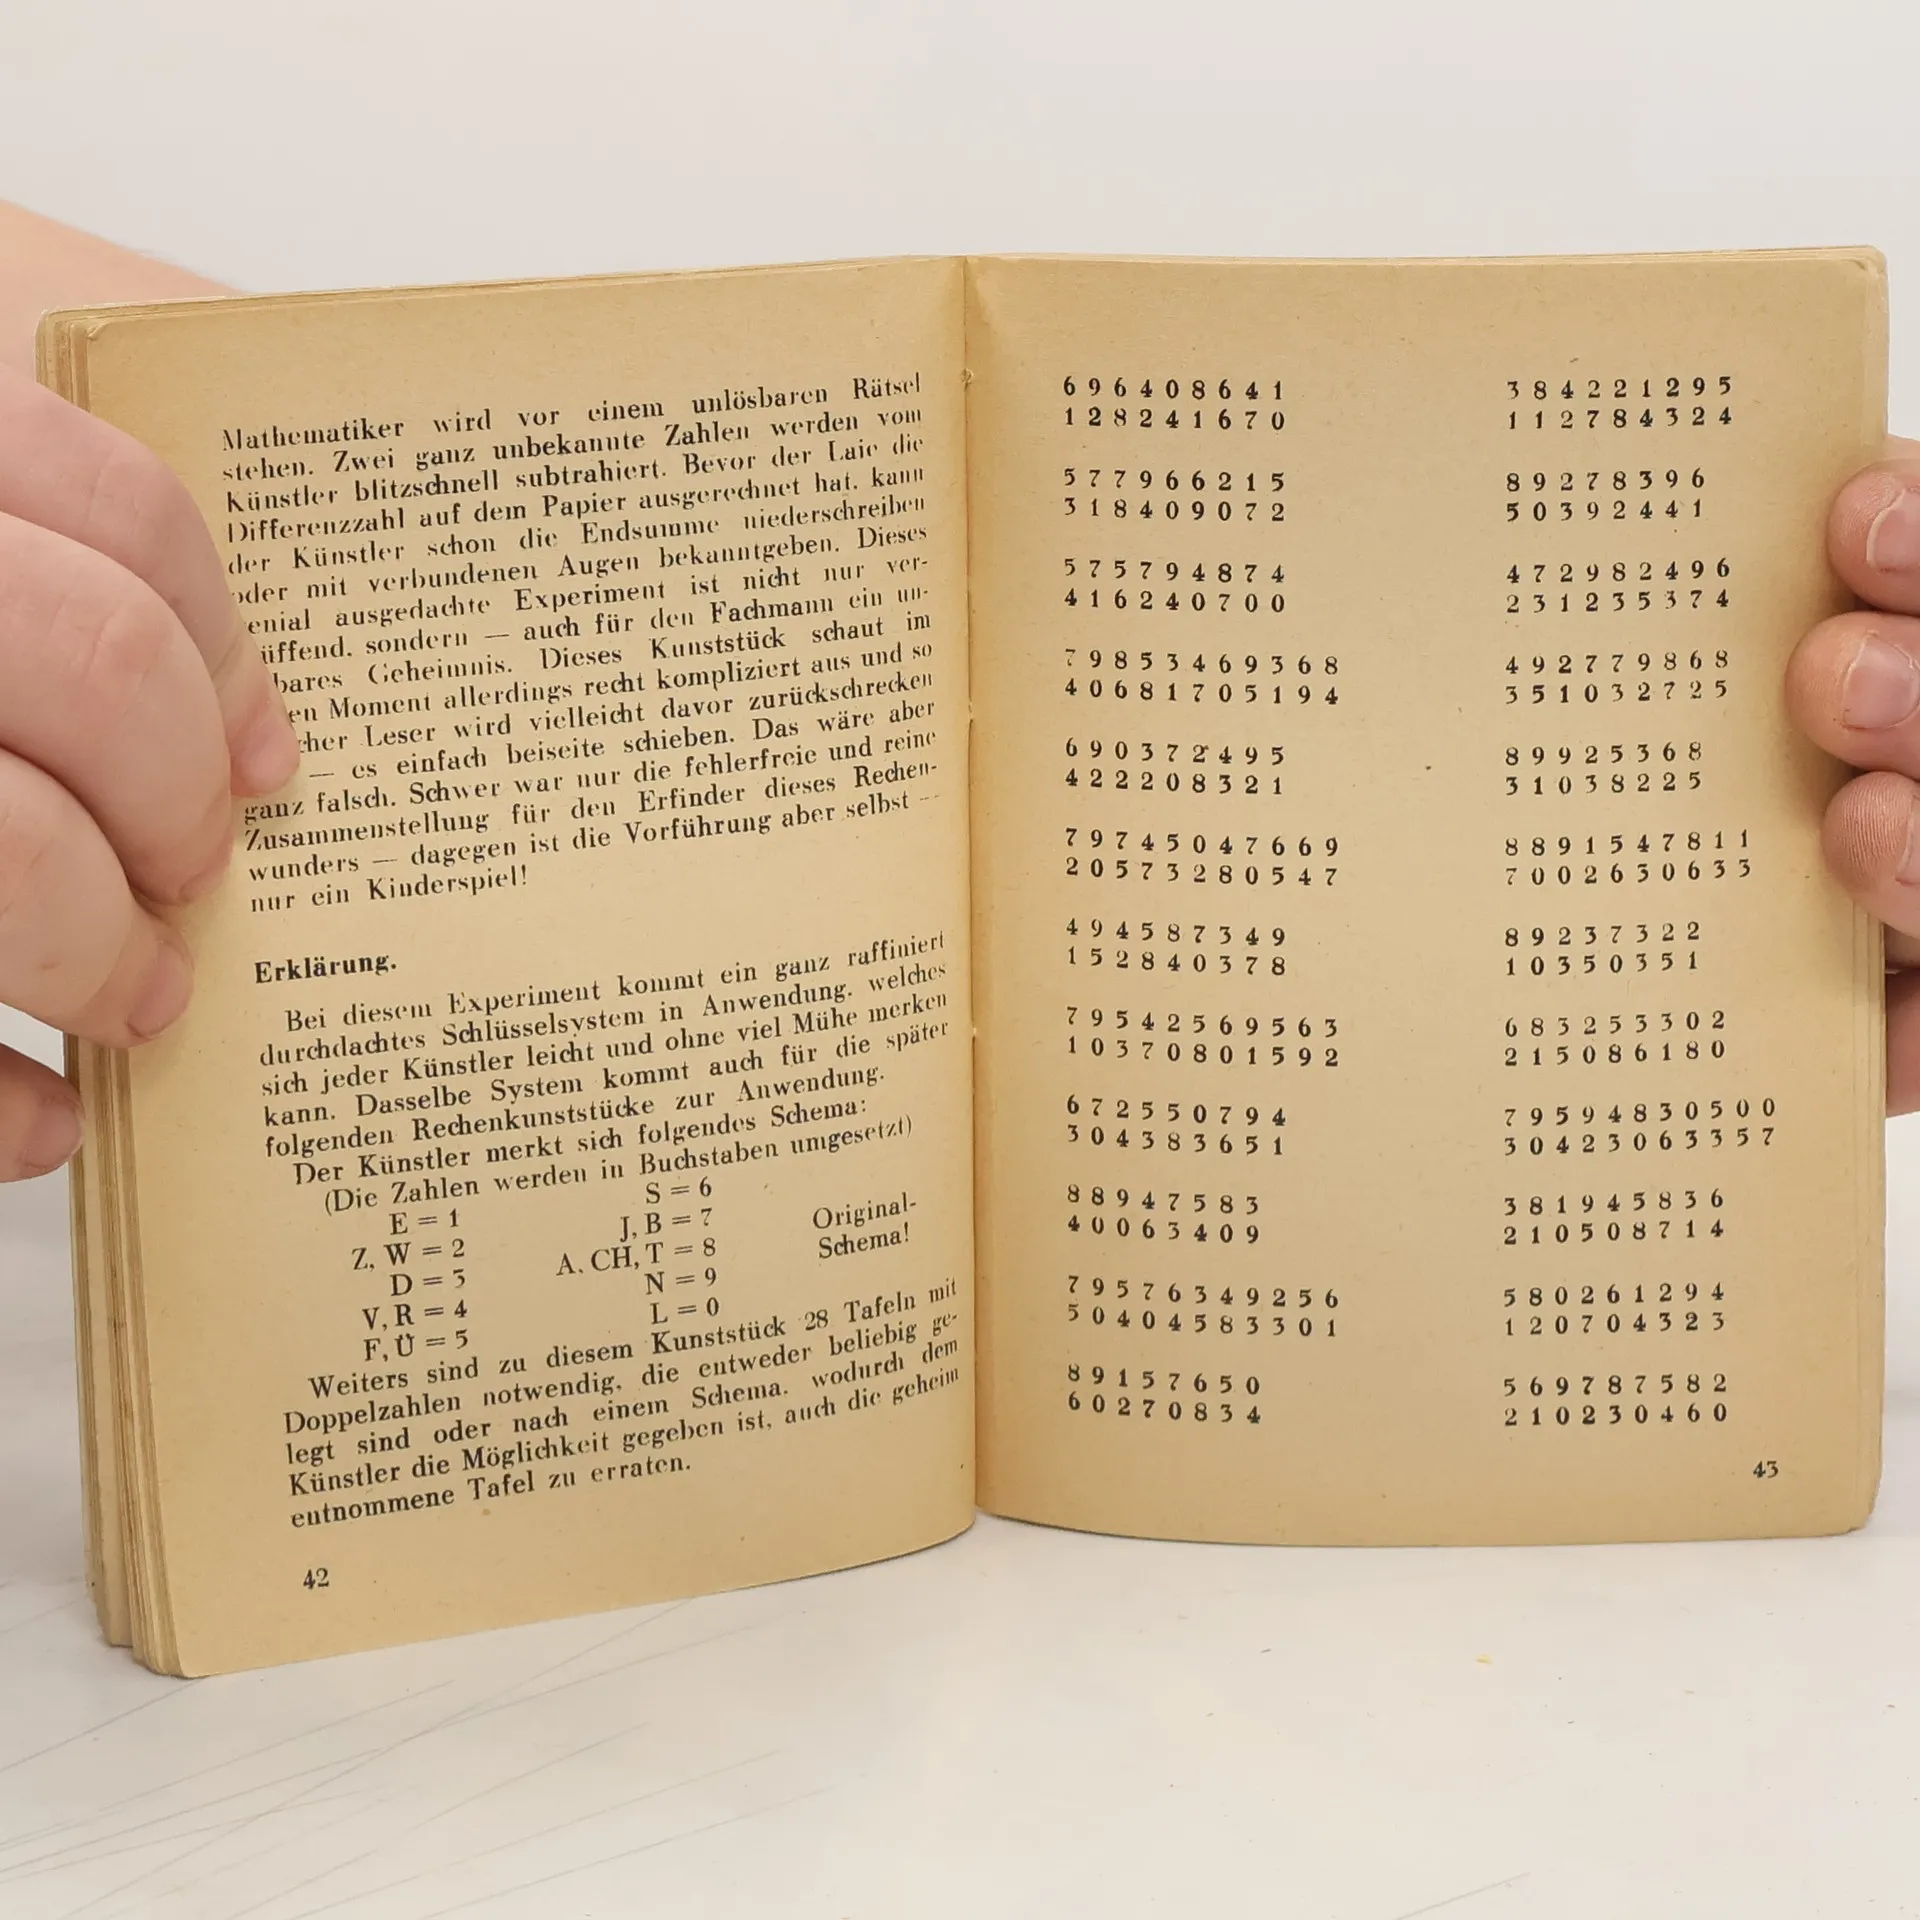 Mathematiker wird vor einem unlösbaren Rätsel
stehen. Zwei ganz unbekannte Zahlen werden vom
Künstler blitzschnell subtrahiert. Bevor der Laie die
Differenzzahl auf dem Papier ausgerechnet hat, kann
der Künstler schon die Endsumme niederschreiben
oder mit verbundenen Augen bekanntgeben. Dieses
ausgedachte Experiment ist nicht nur ver-
sondern — auch für den Fachmann ein un-
Geheimnis. Dieses Kunststück schaut im
Moment allerdings recht kompliziert aus und so
Leser wird vielleicht davor zurückschrecken
— es einfach beiseite schieben. Das wäre aber
ganz falsch. Schwer war nur die fehlerfreie und reine
Zusammenstellung für den Erfinder dieses Rechen-
wunders — dagegen ist die Vorführung aber selbst —
nur ein Kinderspiel!
Erklärung.
Bei diesem Experiment kommt ein ganz raffiniert
durchdachtes Schlüsselsystem in Anwendung, welches
sich jeder Künstler leicht und ohne viel Mühe merken
kann. Dasselbe System kommt auch für die später
folgenden Rechenkunststücke zur Anwendung.
Der Künstler merkt sich folgendes Schema:
(Die Zahlen werden in Buchstaben umgesetzt)
E = 1
Z, W = 2
D = 3
V, R = 4
F, Ü = 5
S = 6
J, B = 7
A, CH, T = 8
N = 9
L = 0
Original-
Schema!
Weiters sind zu diesem Kunststück 28 Tafeln mit
Doppelzahlen notwendig, die entweder beliebig ge-
legt sind oder nach einem Schema, wodurch dem
Künstler die Möglichkeit gegeben ist, auch die geheim
entnommene Tafel zu erraten.
42
6 9 6 4 0 8 6 4 1
1 2 8 2 4 1 6 7 0
5 7 7 9 6 6 2 1 5
3 1 8 4 0 9 0 7 2
5 7 5 7 9 4 8 7 4
4 1 6 2 4 0 7 0 0
7 9 8 5 3 4 6 9 3 6 8
4 0 6 8 1 7 0 5 1 9 4
6 9 0 3 7 2 4 9 5
4 2 2 2 0 8 3 2 1
7 9 7 4 5 0 4 7 6 6 9
2 0 5 7 3 2 8 0 5 4 7
4 9 4 5 8 7 3 4 9
1 5 2 8 4 0 3 7 8
7 9 5 4 2 5 6 9 5 6 3
1 0 3 7 0 8 0 1 5 9 2
6 7 2 5 5 0 7 9 4
3 0 4 3 8 3 6 5 1
8 8 9 4 7 5 8 3
4 0 0 6 3 4 0 9
7 9 5 7 6 3 4 9 2 5 6
5 0 4 0 4 5 8 3 3 0 1
8 9 1 5 7 6 5 0
6 0 2 7 0 8 3 4
3 8 4 2 2 1 2 9 5
1 1 2 7 8 4 3 2 4
8 9 2 7 8 3 9 6
5 0 3 9 2 4 4 1
4 7 2 9 8 2 4 9 6
2 3 1 2 3 5 3 7 4
4 9 2 7 7 9 8 6 8
3 5 1 0 3 2 7 2 5
8 9 9 2 5 3 6 8
3 1 0 3 8 2 2 5
8 8 9 1 5 4 7 8 1 1
7 0 0 2 6 3 0 6 3 3
8 9 2 3 7 3 2 2
1 0 3 5 0 3 5 1
6 8 3 2 5 3 3 0 2
2 1 5 0 8 6 1 8 0
7 9 5 9 4 8 3 0 5 0 0
3 0 4 2 3 0 6 3 3 5 7
3 8 1 9 4 5 8 3 6
2 1 0 5 0 8 7 1 4
5 8 0 2 6 1 2 9 4
1 2 0 7 0 4 3 2 3
5 6 9 7 8 7 5 8 2
2 1 0 2 3 0 4 6 0
43